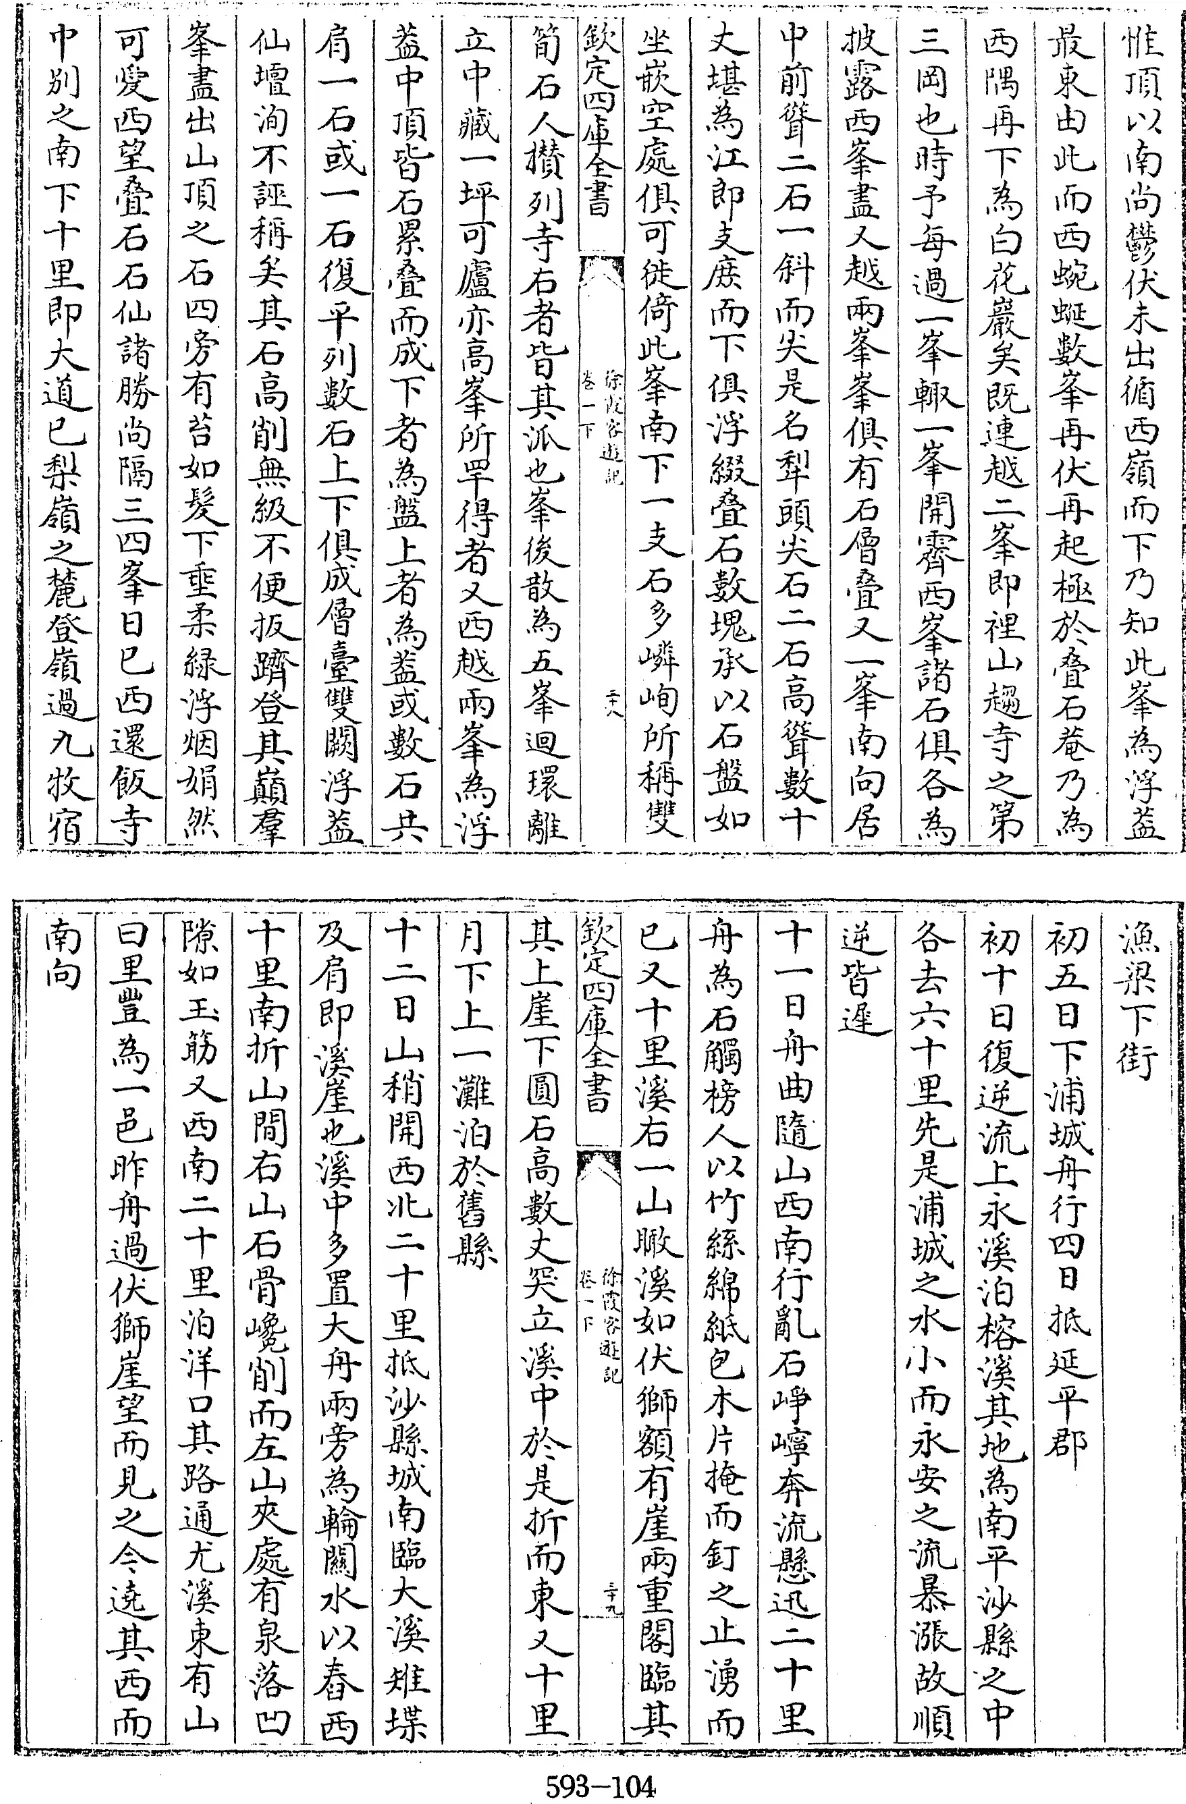 惟頂以南尚鬱伏未出循西嶺而下乃知此峯為浮蓋
最東由此而西蜿蜒數峯再伏再起極於疊石菴乃為
西隅再下為白花巖矣既連越二峯即裡山趨寺之第
三岡也時予每過一峯輙一峯開霽西峯諸石俱各為
披露西峯盡又越兩峯峯俱有石層疊又一峯南向居
中前聳二石一斜而尖是名犁頭尖石二石高聳數十
丈堪為江郎支庶而下俱浮綴疊石數塊承以石盤如
坐嵌空處俱可徙倚此峯南下一支石多嶙峋所稱雙
欽定四庫全書
徐霞客遊記
卷一下
三十八
筍石人攅列寺右者皆其派也峯後散為五峯迴環離
立中藏一坪可廬亦高峯所罕得者又西越兩峯為浮
蓋中頂皆石累疊而成下者為盤上者為蓋或數石共
肩一石或一石復平列數石上下俱成層臺雙闕浮蓋
仙壇洵不誣稱矣其石高削無級不便扳躋登其巔羣
峯盡出山頂之石四旁有苔如髮下垂柔緑浮烟娟然
可愛西望疊石石仙諸勝尚隔三四峯日已西還飯寺
中別之南下十里即大道已梨嶺之麓登嶺過九牧宿
漁梁下街
初五日下浦城舟行四日抵延平郡
初十日復逆流上永溪泊榕溪其地為南平沙縣之中
各去六十里先是浦城之水小而永安之流暴漲故順
逆皆遲
十一日舟曲隨山西南行亂石崢嶸奔流懸迅二十里
舟為石觸榜人以竹絲綿紙包木片掩而釘之止湧而
已又十里溪右一山瞰溪如伏獅額有崖兩重閣臨其
欽定四庫全書
徐霞客遊記
卷一下
三十九
其上崖下圓石高數丈突立溪中於是折而東又十里
月下上一灘泊於舊縣
十二日山稍開西北二十里抵沙縣城南臨大溪雉堞
及肩即溪崖也溪中多置大舟兩旁為輪關水以舂西
十里南折山間右山石骨巉削而左山夾處有泉落凹
隙如玉筯又西南二十里泊洋口其路通尤溪東有山
曰里豐為一邑昨舟過伏獅崖望而見之今遶其西而
南向
593-104